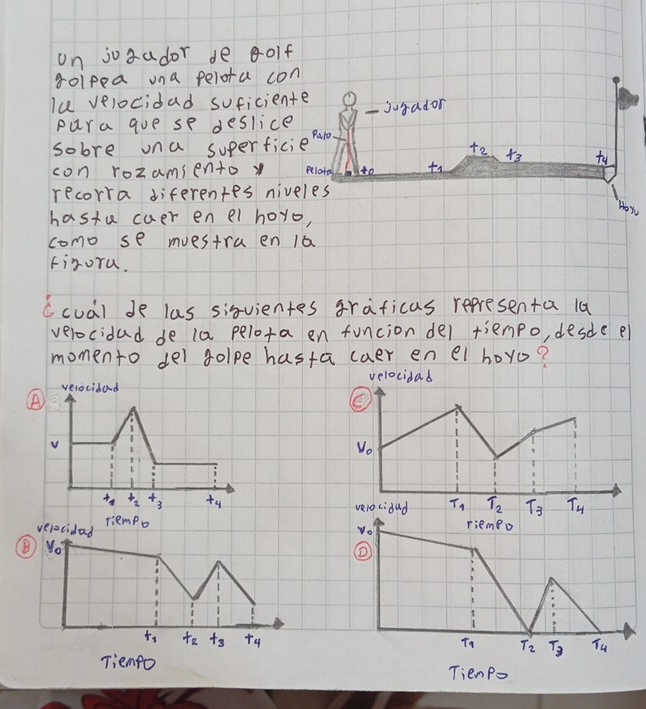 un jugador de golf
golpea una pelota con
la velocidad suficiente
para que se deslice
sobre una superficie
con rozamiento y
recorra diferentes niveles
hasta caer en el hoyo,
como se muestra en la
figura.
jugador
Palo
Pelota
t0
t1
t2
t3
t4
Hoyo
¿cuál de las siguientes gráficas representa la
velocidad de la pelota en funcion del tiempo, desde el
momento del golpe hasta caer en el hoyo?
A
velocidad
v
t1 t2 t3 t4
Tiempo
C
velocidad
Vo
T1 T2 T3 T4
Tiempo
B
velocidad
Vo
t1 t2 t3 t4
Tiempo
D
velocidad
Vo
T1 T2 T3 T4
Tiempo